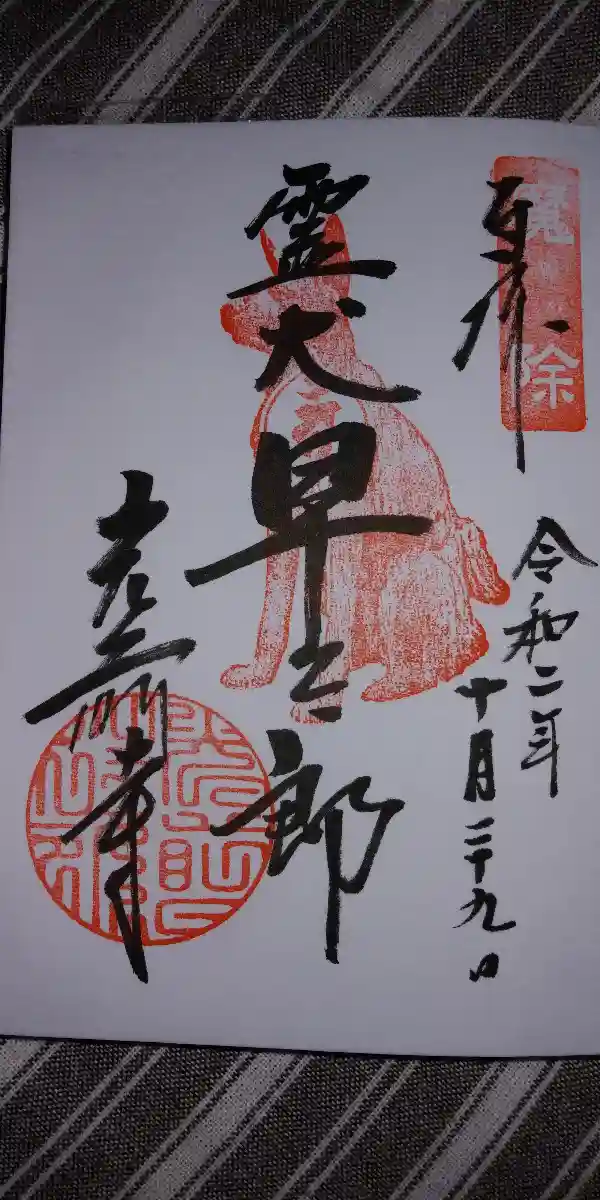 奉拝
魔除
令和二年
十月二十九日
霊犬早太郎
光前寺